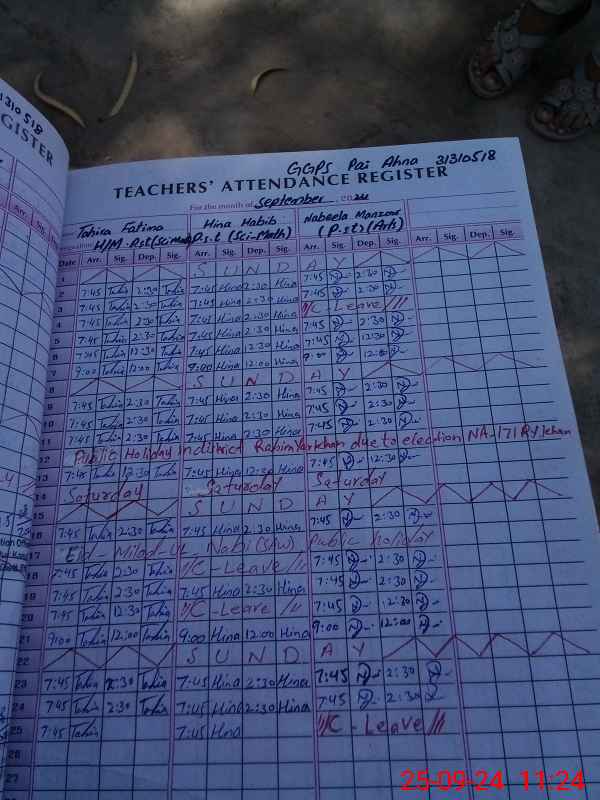 1310518
GISTER
GGPS Pai Ahna 31310518
TEACHERS' ATTENDANCE REGISTER
For the month of September 2024
Tahira Fatima Hina Habib Nabeela Manzoor
H/M P.st (Sci-Math) P.s.t (Sci-Math) (P.st) (Arts)
Date Arr. Sig. Dep. Sig. Arr. Sig. Dep. Sig. Arr. Sig. Dep. Sig. Arr. Sig. Dep. Sig.
1 S U N D A Y
2 7:45 Tahia 2:30 Tahia 7:45 Hina 2:30 Hina 7:45 2:30
3 7:45 Tahia 2:30 Tahia 7:45 Hina 2:30 Hina 7:45 2:30
4 7:45 Tahia 2:30 Tahia 7:45 Hina 2:30 Hina C-Leave
5 7:45 Tahia 2:30 Tahia 7:45 Hina 2:30 Hina 7:45 2:30
6 7:45 Tahia 12:30 Tahia 7:45 Hina 12:30 Hina 7:45 12:30
7 9:00 Tahia 12:00 Tahia 9:00 Hina 12:00 Hina 9:00 12:00
8 S U N D A Y
9 7:45 Tahia 2:30 Tahia 7:45 Hina 2:30 Hina 7:45 2:30
10 7:45 Tahia 2:30 Tahia 7:45 Hina 2:30 Hina 7:45 2:30
11 7:45 Tahia 2:30 Tahia 7:45 Hina 2:30 Hina 7:45 2:30
12 Public Holiday in district Rahim Yar khan due to election NA-171 RY khan
13 7:45 Tahia 12:30 Tahia 7:45 Hina 12:30 Hina 7:45 12:30
14 Saturday Saturday Saturday
15 S U N D A Y
16 7:45 Tahia 2:30 Tahia 7:45 Hina 2:30 Hina 7:45 2:30
17 Eid-Milad-UL-Nabi (S/W) Public holiday
18 7:45 Tahia 2:30 Tahia C-Leave 7:45 2:30
19 7:45 Tahia 2:30 Tahia 7:45 Hina 2:30 Hina 7:45 2:30
20 7:45 Tahia 12:30 Tahia C-Leave 7:45 12:30
21 9:00 Tahia 12:00 Tahia 9:00 Hina 12:00 Hina 9:00 12:00
22 S U N D A Y
23 7:45 Tahia 2:30 Tahia 7:45 Hina 2:30 Hina 7:45 2:30
24 7:45 Tahia 2:30 Tahia 7:45 Hina 2:30 Hina 7:45 2:30
25 7:45 Tahia 7:45 Hina C-Leave
26
27
25-09-24 11:24